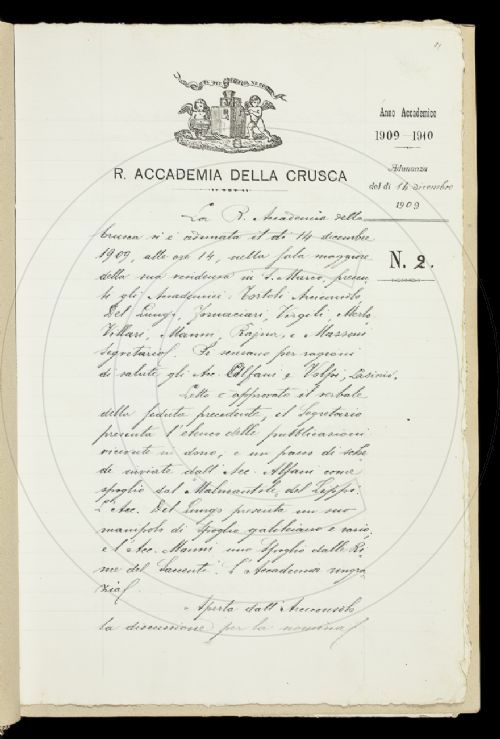 R. ACCADEMIA DELLA CRUSCA
Anno Accademico
1909-1910
Adunanza
del dì 14 dicembre
1909
N. 2.
La R. Accademia della
Crusca si è adunata il dì 14 dicembre
1909, alle ore 14, nella sala maggiore
della sua residenza in S. Marco, presen-
ti gli Accademici: Tortoli Arciconsolo,
Del Lungo, Fornaciari, Virgili, Merlo
Villari, Mazzoni, Rajna, e
Segretario. Si scusano per ragioni
di salute, gli Acc. Alfani e Volpi,
Letto e approvato il verbale
della seduta precedente, il Segretario
presenta l'elenco delle pubblicazioni
ricevute in dono, e un pacco di sche-
de inviate dall'Acc. Alfani come
spoglio dal Malmantile, del Lippi.
L'Acc. Del Lungo presenta un suo
manipolo di spoglio galileiano e vario,
e l'Acc. uno spoglio dalle Ri-
me del Saccenti. L'Accademia ringra-
zia.
Aperta dall'Arciconsolo
la discussione per la nomina